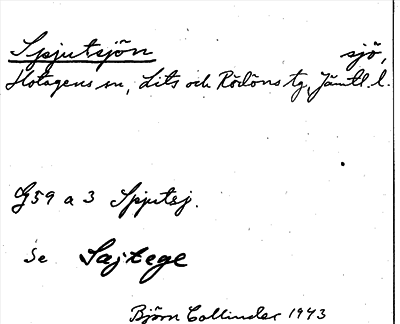 Spjutsjön sjö,
Hotagens sn, Lits och Rödöns tg, Jämtl. l.
G59 a 3 Spjutsj.
Se Sajtege
Björn Collinder 1943